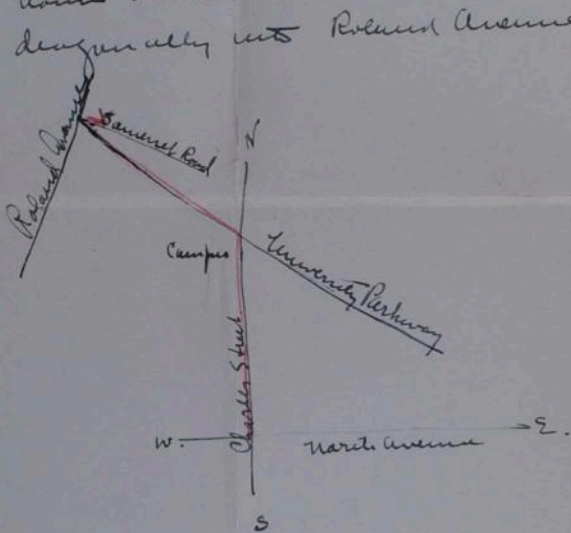 diagonally into Roland Avenue
Roland Avenue
Somerset Road
N
Campus
University Parkway
Charles Street
W.
North Avenue
E.
S